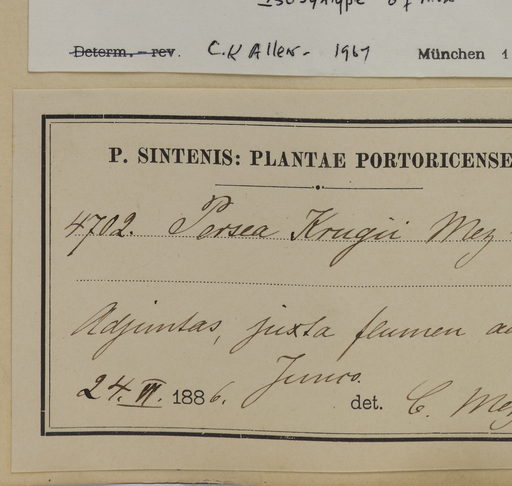 Isosyntype of
Determ. - rev. C.K Allen - 1967 München 1
P. SINTENIS: PLANTAE PORTORICENSE
4702. Persea Krugii Mez
Adjuntas, juxta flumen ad
Junco.
24. VI. 1886. det. C. Mez